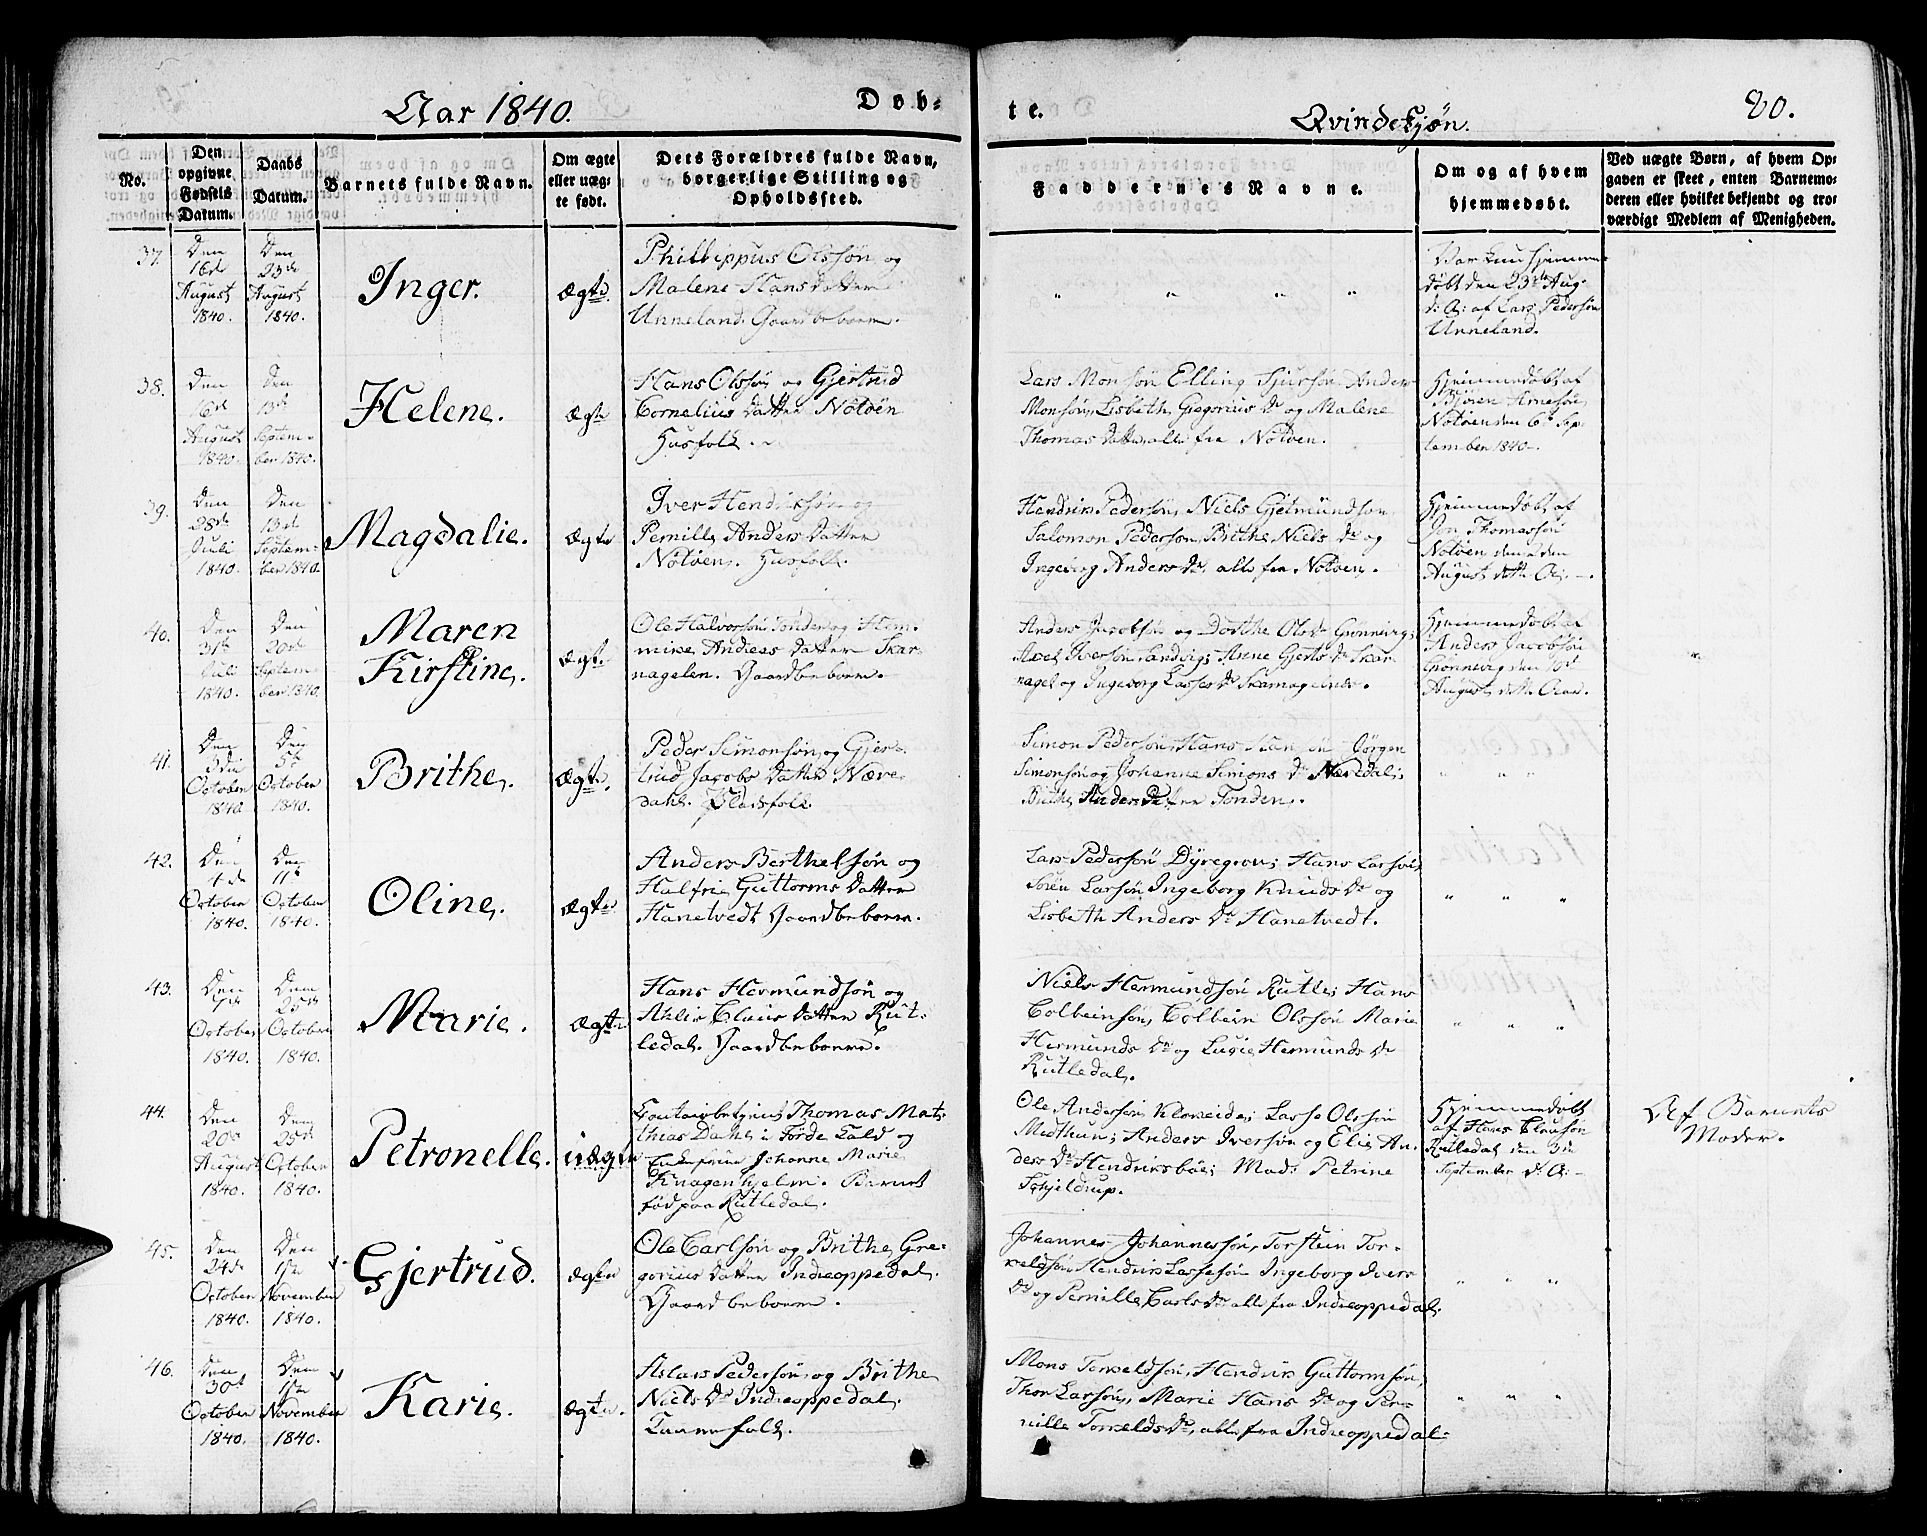 Aar 1840. Døb-
te. Qvindekjøn. 80.
No.
Den opgivne Fødsels Datum.
Daabs Datum.
Barnets fulde Navn.
Om ægte eller uægte født.
Dets Forældres fulde Navn, borgerlige Stilling og Opholdssted.
Faddernes Navne.
Om og af hvem hjemmedøbt.
Ved uægte Børn, af hvem Opgaven er skeet, enten Barnemoderen eller hvilket bekjendt og troværdigt Medlem af Menigheden.
37.
Den 16de August 1840.
Den 23de August 1840.
Inger.
Ægte
Phillippus Olssøn og
Malene Hansdatter
Unneland. Gaardbeboere.
" " " "
Var kun hjemme-
døbt den 23de Aug-
d: A: af Lars Pedersøn
Unneland.
38.
Den 16de August 1840.
Den 13de September 1840.
Helene.
Ægte
Hans Olssøn og Gjertrud
Cornelius Datter Nötöen
Husfolk.
Lars Monsøn, Elling Sjursøn, Anders
Monsøn, Lisbeth Gregorius Dr og Malene
Thomas Datter alle fra Nötöen.
Hjemmedøbt af
Björn Arnesøn
Nötöen den 6te Sep-
tember 1840.
39.
Den 28de Juli 1840.
Den 13de September 1840.
Magdalie.
Ægte
Iver Hendriksøn og
Pernille Anders Datter
Nötöen. Husfolk.
Hendrik Pedersøn, Niels Gjermundsøn
Salomon Pedersøn, Brithe Niels Dr og
Ingeborg Anders Dr alle fra Nötöen.
Hjemmedøbt af
Thomassøn
Nötöen den 2den
August dette A.
40.
Den 31te Juli 1840.
Den 20de September 1840.
Maren
Kirstine.
Ægte
Ole Halvorsøn Tönder og Hem-
mine Andreas Datter Skar-
nagelen. Gaardbeboere.
Anders Jacobsøn og Dorthe Ols Dr Grönnevig;
Axel Iversøn Sandvig; Anne Gjerts Dr Skar-
nagel og Ingeborg Lasses Dr Skarnagelen.
Hjemmedøbt af
Anders Jacobsøn
Grönnevig den
August dette Aar.
41.
Den 3die October 1840.
Den 5te October 1840.
Brithe.
Ægte.
Peder Simonsøn og Gjer-
trud Jacobs Datter Næve-
dahl. Pladsfolk.
Simon Pedersøn, Hans Jörgen
Simonsøn og Johanne Simons Dr Nævedal;
Brithe Anders Datter Tonden.
" " "
42.
Den 4de October 1840.
Den 11te October 1840.
Oline.
Ægte
Anders Berthelsøn og
Halfrie Guttorms Datter
Hanetvedt Gaardbeboere.
Lars Pedersøn Dyregrov; Hans Larsøn,
Sören Larsøn Ingeborg Knuds Dr og
Lisbeth Anders Dr Hanetvedt.
" " "
43.
Den 7de October 1840.
Den 25de October 1840.
Marie.
Ægte
Hans Hermundsøn og
Ahlis Claus Datter Rut-
ledal. Gaardbeboere.
Niels Hermundsøn Rutle; Hans
Colbeinsøn, Colbein Olssøn Marie
Hermunds Dr og Lucie Hermunds Dr
Rutledal.
" " "
44.
Den 20de August 1840.
Den 25de October 1840.
Petronelle.
uægte
Thomas Mat-
thias Dahl i Förde Tald og
Enkefrue Johanne Marie
Knagenhjelm. Barnet
fød paa Rutledal.
Ole Andersøn Kloveide; Lasse Olssøn
Midthun; Anders Iversøn og Elie An-
ders Dr Hendriksböe; Mad. Petrine
Schjeldrup.
Hjemmedøbt
af Hans Claussøn
Rutledal den 3die
September d: A:
Af Barnets
Moder.
45.
Den 24de October 1840.
Den 1ste November 1840.
Gjertrud.
Ægte
Ole Carlsøn og Brithe Gre-
gorius Datter Indreoppedal.
Gaardbeboere.
Johannes Johannessøn, Torstein Tor-
keldsøn Hendrik Lassesøn Ingeborg Ivers
Dr og Pernille Carls Dr alle fra Indreoppedal.
" " "
46.
Den 30te October 1840.
Den 1ste November 1840.
Karie.
Ægte.
Aslak Pedersøn og Brithe
Niels Dr Indreoppedal.
folk.
Mons Torkeldsøn, Hendrik Guttormsøn,
Thor Larsøn, Marie Hans Dr og Per-
nille Torkelds Dr, alle fra Indreoppedal.
" " "